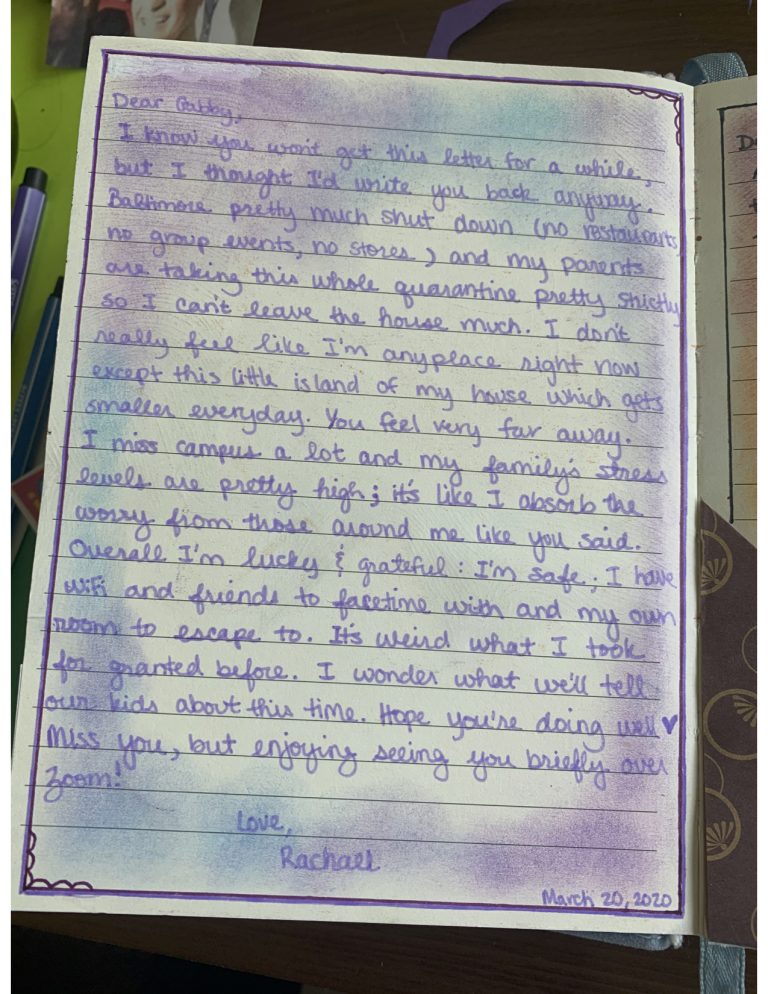 Dear Gabby,
I know you won't get this letter for a while,
but I thought I'd write you back anyway.
Baltimore pretty much shut down (no restaurants,
no group events, no stores) and my parents
are taking this whole quarantine pretty strictly
so I can't leave the house much. I don't
really feel like I'm anyplace right now
except this little island of my house which gets
smaller everyday. You feel very far away.
I miss campus a lot and my family's stress
levels are pretty high; it's like I absorb the
worry from those around me like you said.
Overall I'm lucky & grateful: I'm safe; I have
wifi and friends to facetime with and my own
room to escape to. It's weird what I took
for granted before. I wonder what we'll tell
our kids about this time. Hope you're doing well ♥
Miss you, but enjoying seeing you briefly over
Zoom!
Love,
Rachael
March 20, 2020